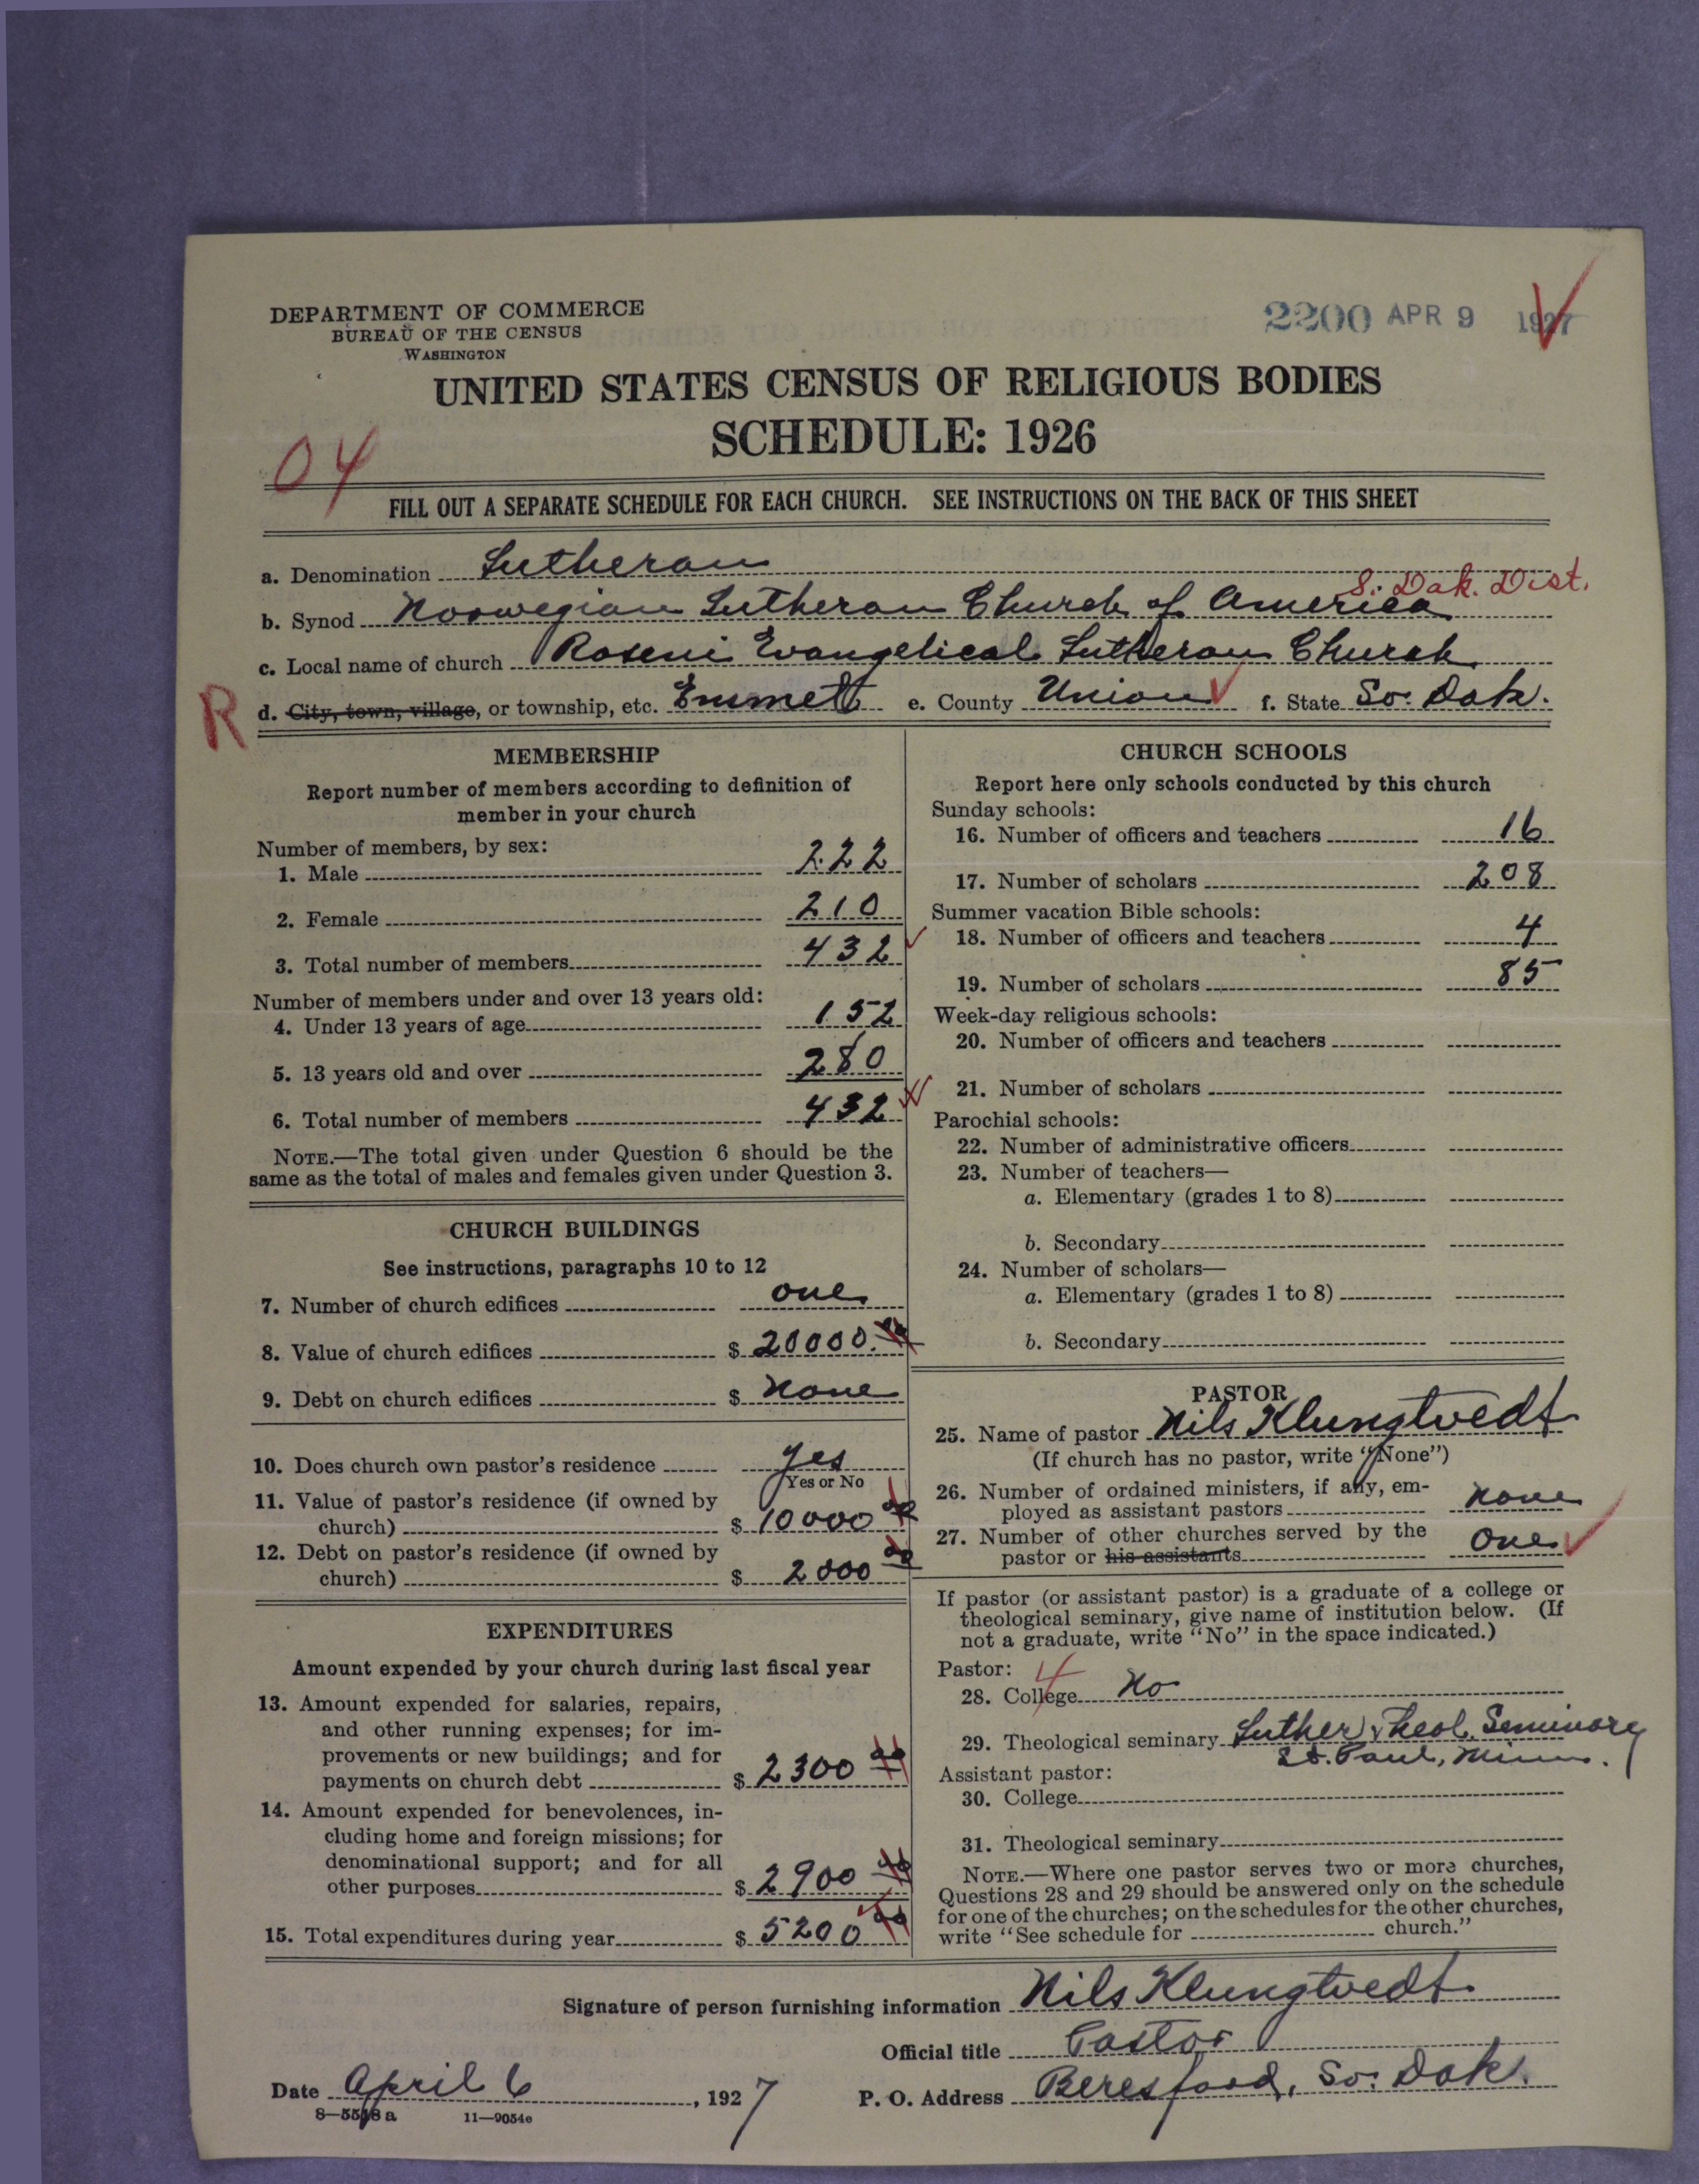 DEPARTMENT OF COMMERCE
BUREAU OF THE CENSUS
WASHINGTON
2200 APR 9 1927
UNITED STATES CENSUS OF RELIGIOUS BODIES
SCHEDULE: 1926
04
FILL OUT A SEPARATE SCHEDULE FOR EACH CHURCH. SEE INSTRUCTIONS ON THE BACK OF THIS SHEET
a. Denomination Lutheran
S. Dak. Dist.
b. Synod Norwegian Lutheran Church of America
c. Local name of church Roseni Evangelical Lutheran Church
R d. City, town, village, or township, etc. Emmett e. County Union f. State So. Dak.
MEMBERSHIP
Report number of members according to definition of
member in your church
Number of members, by sex:
1. Male 222
2. Female 210
3. Total number of members 432
Number of members under and over 13 years old:
4. Under 13 years of age 152
5. 13 years old and over 280
6. Total number of members 432
NOTE.—The total given under Question 6 should be the
same as the total of males and females given under Question 3.
CHURCH BUILDINGS
See instructions, paragraphs 10 to 12
7. Number of church edifices one
8. Value of church edifices $ 20000.00
9. Debt on church edifices $ none
10. Does church own pastor's residence yes
Yes or No
11. Value of pastor's residence (if owned by
church) $ 10000 00
12. Debt on pastor's residence (if owned by
church) $ 2000 00
EXPENDITURES
Amount expended by your church during last fiscal year
13. Amount expended for salaries, repairs,
and other running expenses; for im-
provements or new buildings; and for
payments on church debt $ 2300 00
14. Amount expended for benevolences, in-
cluding home and foreign missions; for
denominational support; and for all
other purposes $ 2900 00
15. Total expenditures during year $ 5200 00
CHURCH SCHOOLS
Report here only schools conducted by this church
Sunday schools:
16. Number of officers and teachers 16
17. Number of scholars 208
Summer vacation Bible schools:
18. Number of officers and teachers 4
19. Number of scholars 85
Week-day religious schools:
20. Number of officers and teachers
21. Number of scholars
Parochial schools:
22. Number of administrative officers
23. Number of teachers—
a. Elementary (grades 1 to 8)
b. Secondary
24. Number of scholars—
a. Elementary (grades 1 to 8)
b. Secondary
PASTOR
25. Name of pastor Nils Klungtvedt
(If church has no pastor, write "None")
26. Number of ordained ministers, if any, em-
ployed as assistant pastors none
27. Number of other churches served by the
pastor or his assistants one
If pastor (or assistant pastor) is a graduate of a college or
theological seminary, give name of institution below. (If
not a graduate, write "No" in the space indicated.)
Pastor: 4
28. College No
29. Theological seminary Luther Theol. Seminary
St. Paul, Minn.
Assistant pastor:
30. College
31. Theological seminary
NOTE.—Where one pastor serves two or more churches,
Questions 28 and 29 should be answered only on the schedule
for one of the churches; on the schedules for the other churches,
write "See schedule for church."
Signature of person furnishing information Nils Klungtvedt
Official title Pastor
Date April 6, 1927 P. O. Address Beresford, So. Dak.
8—5518 a 11—9054e